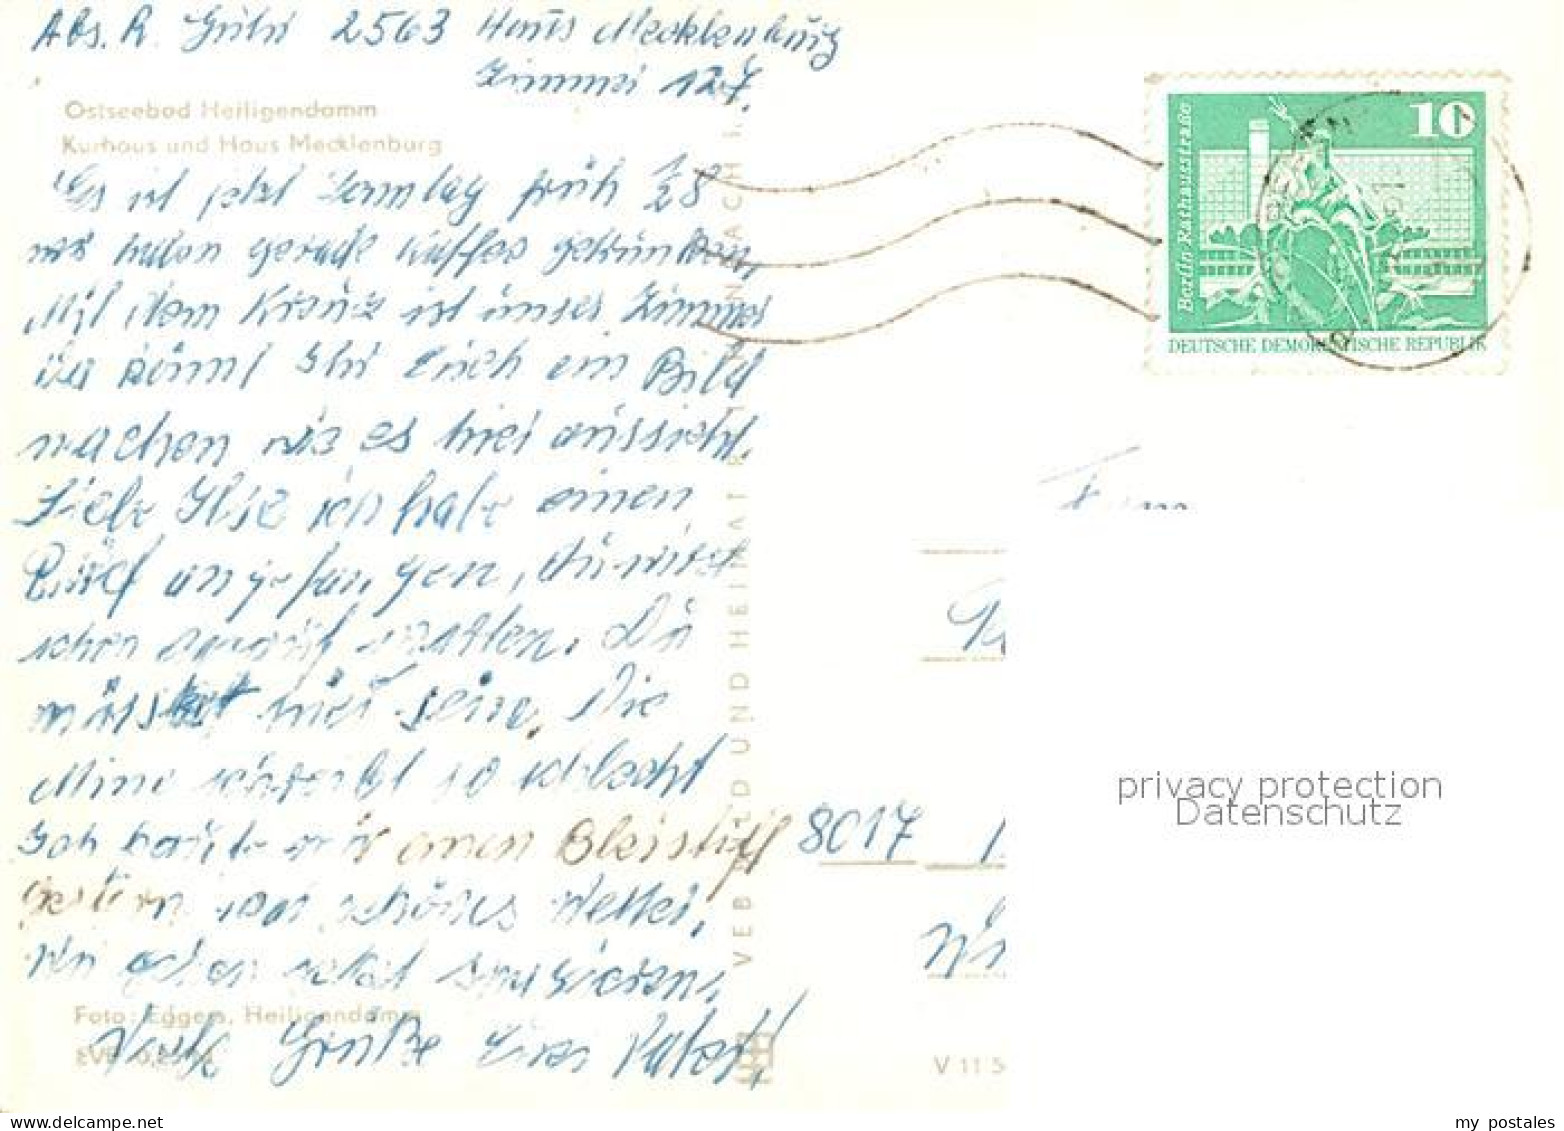 Abs. R. 2563 Haus Mecklenburg
Zimmer 127.
Ostseebad Heiligendamm
Kurhaus und Haus Mecklenburg
Es ist jetzt Sonntag früh 1/28
wir haben gerade Kaffee getrunken,
Mit dem Kreuz ist unser Zimmer
da könnt Ihr Euch ein Bild
machen wie es hier aussieht.
Liebe Ilse ich habe einen
Brief angefangen, du wirst
schon warten. Du
müsstest hier sein. Die
Mine schreibt so schlecht
Ich kaufte mir einen Bleistift
Gestern war schönes Wetter,
Wir gehen jetzt spazieren.
Viele Grüße Euer Vater!
Foto: Eggers, Heiligendamm
EVP
VEB BILD UND HEIMAT REICHENBACH I.
V 11 5
10
Berlin-Rathausstraße
DEUTSCHE DEMOKRATISCHE REPUBLIK
Fam
8017
privacy protection
Datenschutz
my postales